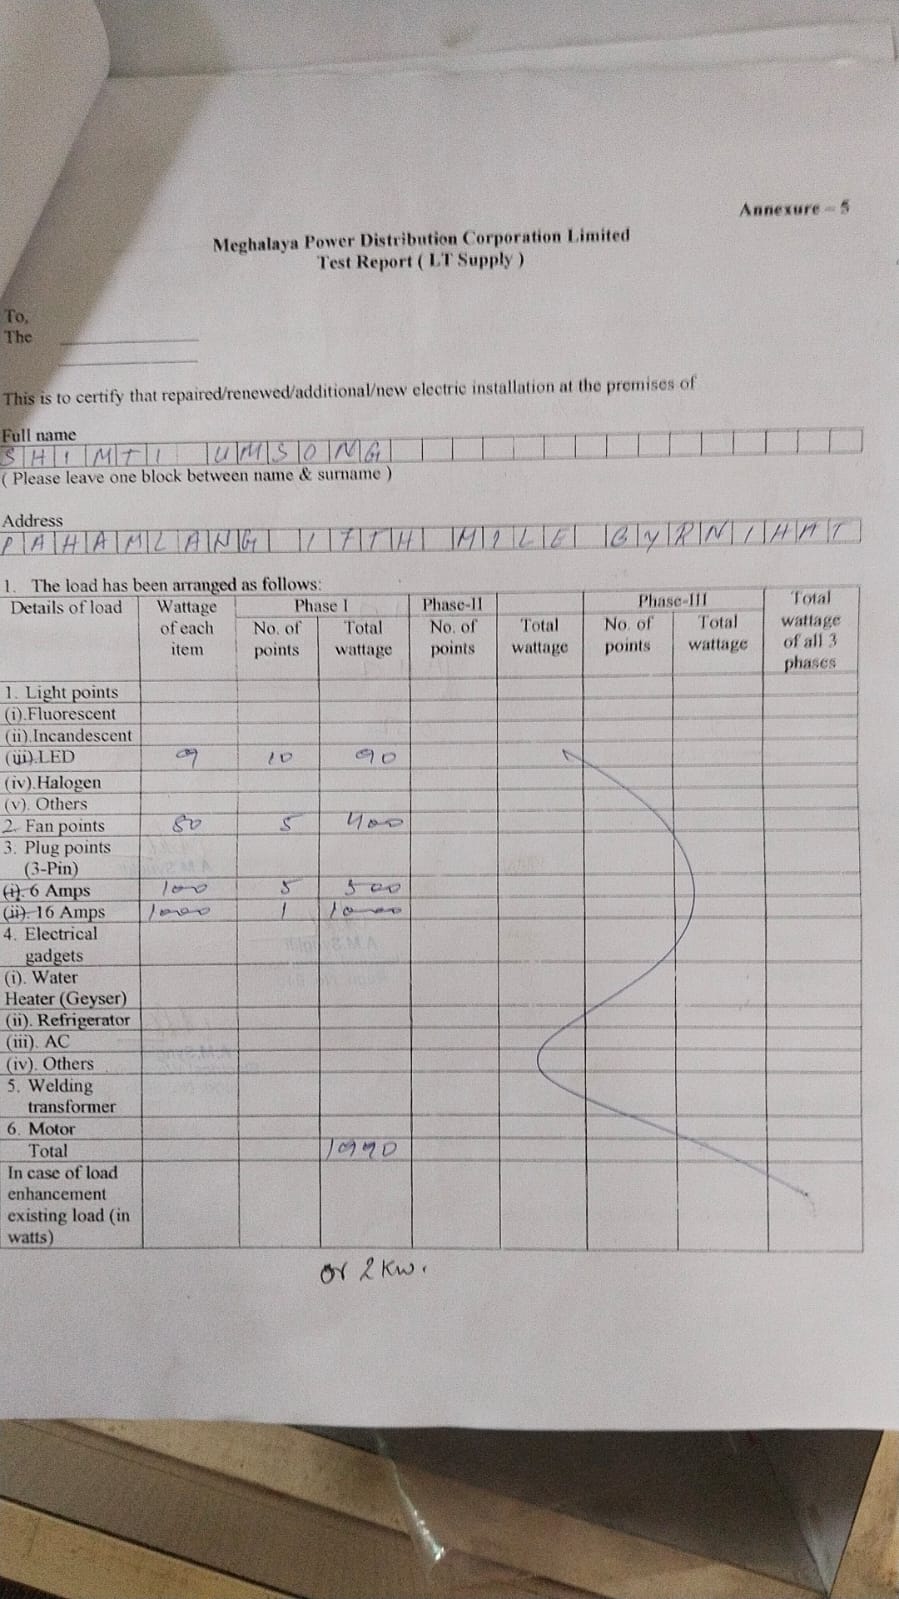 Annexure – 5
Meghalaya Power Distribution Corporation Limited
Test Report ( LT Supply )
To,
The
This is to certify that repaired/renewed/additional/new electric installation at the premises of
Full name
SHIMTI UMSONG
( Please leave one block between name & surname )
Address
PAHAMLANG 17TH MILE BYRNIHAT
1. The load has been arranged as follows:
Details of load Wattage of each item Phase I No. of points Total wattage Phase-II No. of points Total wattage Phase-III No. of points Total wattage Total wattage of all 3 phases
1. Light points
(i).Fluorescent
(ii).Incandescent
(iii).LED 9 10 90
(iv).Halogen
(v). Others
2. Fan points 80 5 400
3. Plug points
(3-Pin)
(i). 6 Amps 100 5 500
(ii). 16 Amps 1000 1 1000
4. Electrical
gadgets
(i). Water
Heater (Geyser)
(ii). Refrigerator
(iii). AC
(iv). Others
5. Welding
transformer
6. Motor
Total 1990
In case of load
enhancement
existing load (in
watts)
or 2 KW.